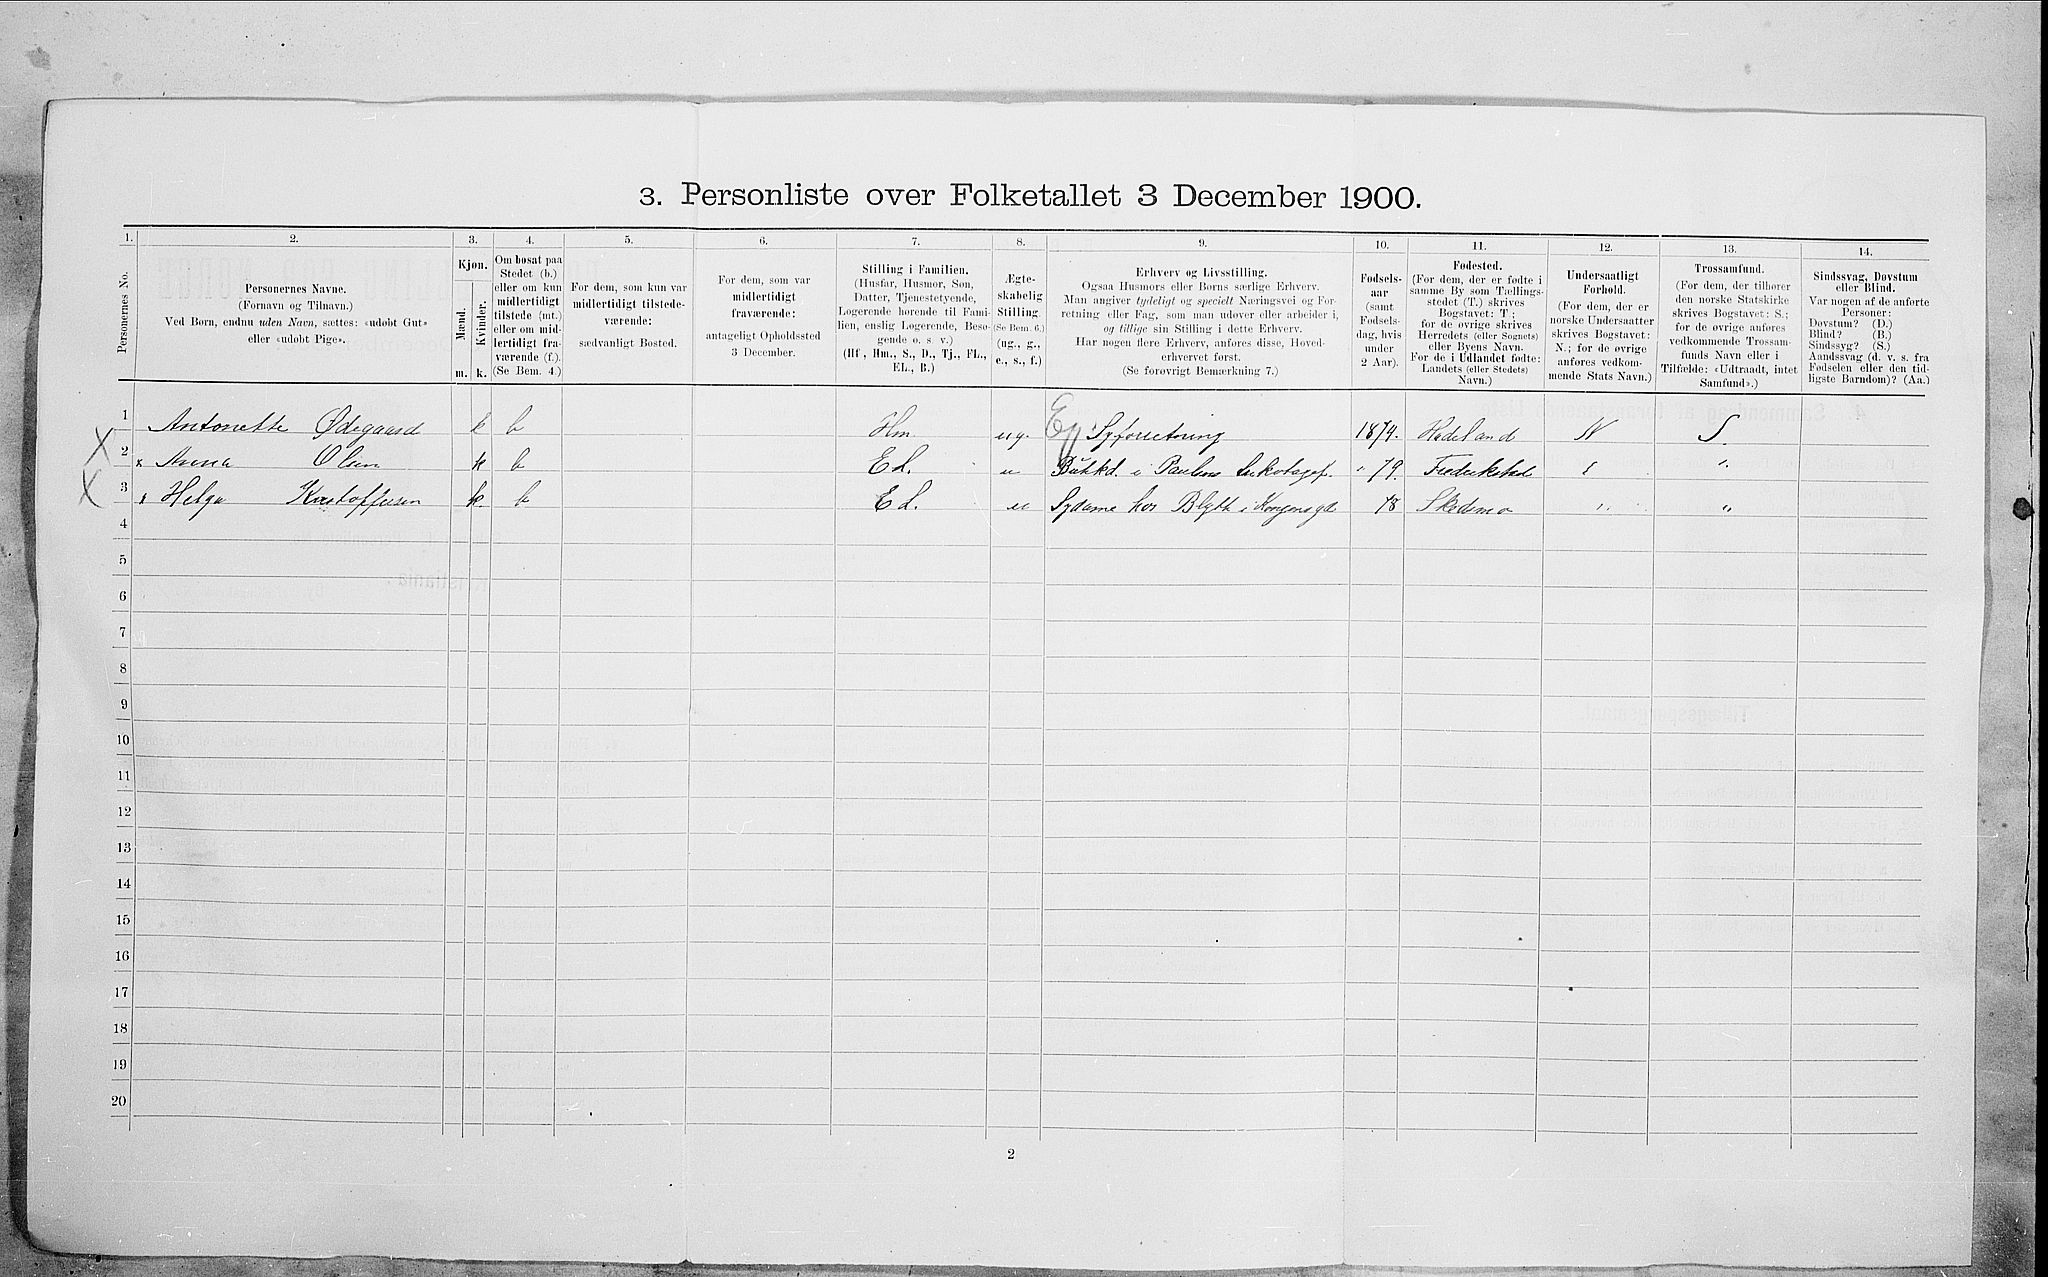 3. Personliste over Folketallet 3 December 1900.
1. 2. 3. 4. 5. 6. 7. 8. 9. 10. 11. 12. 13. 14.
Personernes No.
Personernes Navne.
(Fornavn og Tilnavn.)
Ved Børn, endnu uden Navn, sættes: «udøbt Gut»
eller «udøbt Pige».
Kjøn.
Mænd.
Kvinder.
m. k.
Om bosat paa
Stedet (b.)
eller om kun
midlertidigt
tilstede (mt.)
eller om mid-
lertidigt fra-
værende (f.).
(Se Bem. 4.)
For dem, som kun var
midlertidigt tilstede-
værende:
sædvanligt Bosted.
For dem, som var
midlertidigt
fraværende:
antageligt Opholdssted
3 December.
Stilling i Familien.
(Husfar, Husmor, Søn,
Datter, Tjenestetyende,
Logerende hørende til Fami-
lien, enslig Logerende, Besø-
gende o. s. v.)
(Hf., Hm., S., D., Tj., FL.,
EL., B.)
Ægte-
skabelig
Stilling.
(Se Bem. 6.)
(ug., g.,
e., s., f.)
Erhverv og Livsstilling.
Ogsaa Husmors eller Børns særlige Erhverv.
Man angiver tydeligt og specielt Næringsvei og For-
retning eller Fag, som man udøver eller arbeider i,
og tillige sin Stilling i dette Erhverv.
Har nogen flere Erhverv, anføres disse, Hoved-
erhvervet først.
(Se forøvrigt Bemærkning 7.)
Fødsels-
aar
(samt
Fødsels-
dag, hvis
under
2 Aar).
Fødested.
(For dem, der er fødte i
samme By som Tællings-
stedet (T.) skrives
Bogstavet: T;
for de øvrige skrives
Herredets (eller Sognets)
eller Byens Navn.
For de i Udlandet fødte:
Landets (eller Stedets)
Navn.)
Undersaatligt
Forhold.
(For dem, der er
norske Undersaatter
skrives Bogstavet:
N.; for de øvrige
anføres vedkom-
mende Stats Navn.)
Trossamfund.
(For dem, der tilhører
den norske Statskirke
skrives Bogstavet: S.;
for de øvrige anføres
vedkommende Trossam-
funds Navn eller i
Tilfælde: «Udtraadt, intet
Samfund».)
Sindssvag, Døvstum
eller Blind.
Var nogen af de anførte
Personer:
Døvstum? (D.)
Blind? (B.)
Sindssyg? (S.)
Aandssvag (d. v. s. fra
Fødselen eller den tid-
ligste Barndom)? (Aa.)
1 Antonette Ødegaard k b Hm ug. Syforretning 1874. Hadeland N S.
X 2 x Anna Olsen k b EL. u i Paulsens " 79. Fredrikstad " "
X 3 x Helga Kristoffersen k. b EL. u Sydame hos Blyth i Kongensgd 78 Skedsmo " "
4
5
6
7
8
9
10
11
12
13
14
15
16
17
18
19
20
2